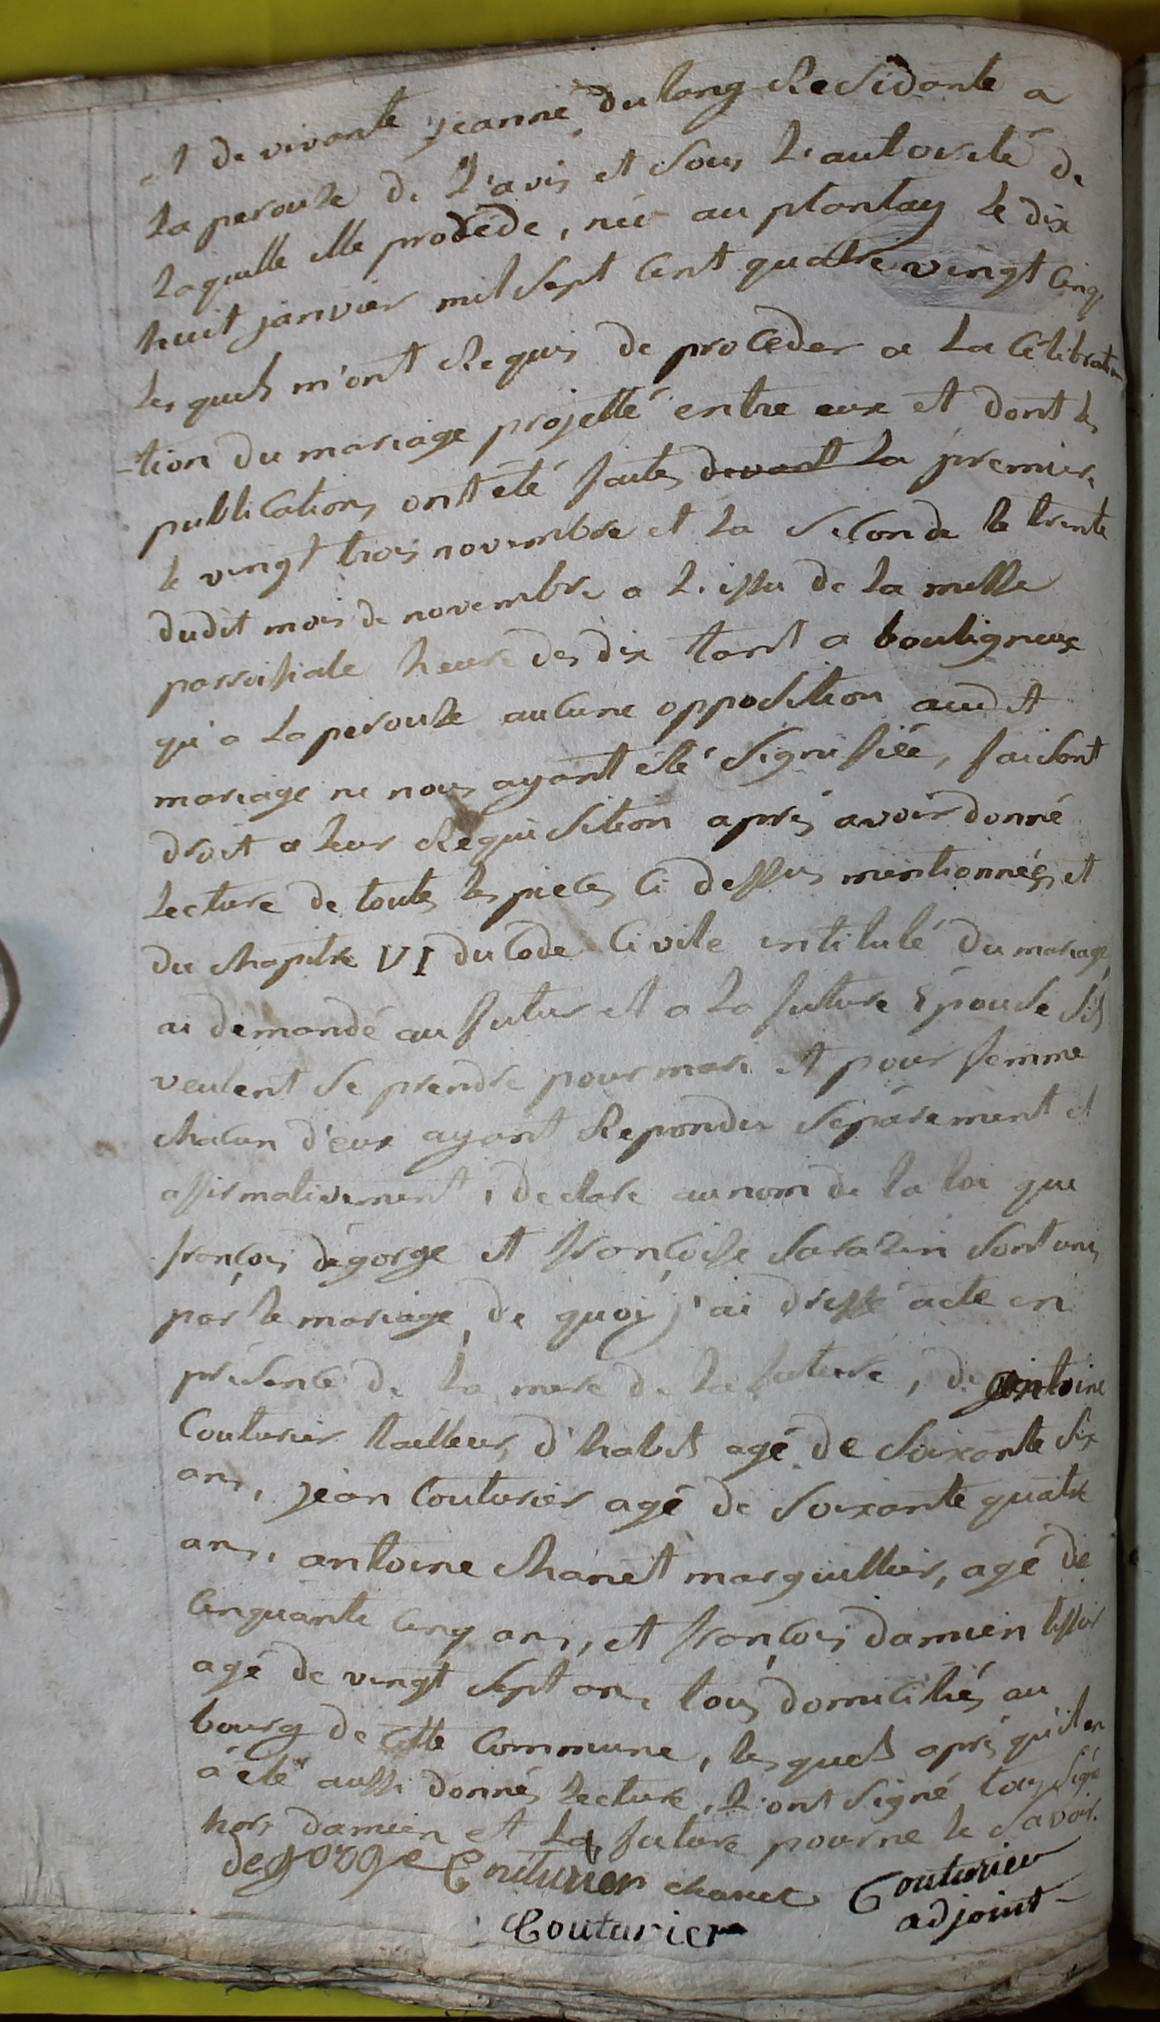 et de vivante jeanne Dulong Residante a
La perouze de L'avis et Sous L'autorité de
Laquelle elle procéde, née au plantay Le dix
huit janvier mil Sept Cent quatre vingt Cinq
Les quels m'ont Requis de proCéder a La Célébration
-tion du mariage projetté entre eux et dont Les
publications ont été faites devant La premiere
le vingt trois novembre et La Seconde le trente
dudit mois de novembre a L'issu de La messe
paroissiale heure des dix tant a bouligneux
qu'a La perouze auCune opposition audit
mariage ne nous ayant été Signifiée, faisant
droit a leur Requisition après avoir donné
Lecture de toutes les pieces Ci dessus mentionnées et
du chapitre VI du Code Civile intitulé du mariage
ai demandé au futur et a La future Epouse S'ils
veulent Se prendre pour mari et pour femme
chacun d'eux ayant Repondu Séparement et
affirmativement, declare au nom de la loi que
françois dégorge et françoise Sarazin Sont unis
par le mariage, de quoi j'ai dressé acte en
présence de La mere de La future, de antoine
Couturier tailleur d'habits agé de Soixante Six
ans, jean Couturier agé de Soixante quatre
ans, antoine Chanet marguillier, agé de
Cinquante Cinq ans, et françois damien tissier
agé de vingt Sept ans tous domiciliés au
bourg de Cette Commune, les quels après qu'il en
a été aussi donné Lecture, L'ont Signé
hors damien et La future pour ne le Savoir.
degorge Couturier chanet Couturier
Couturier adjoint